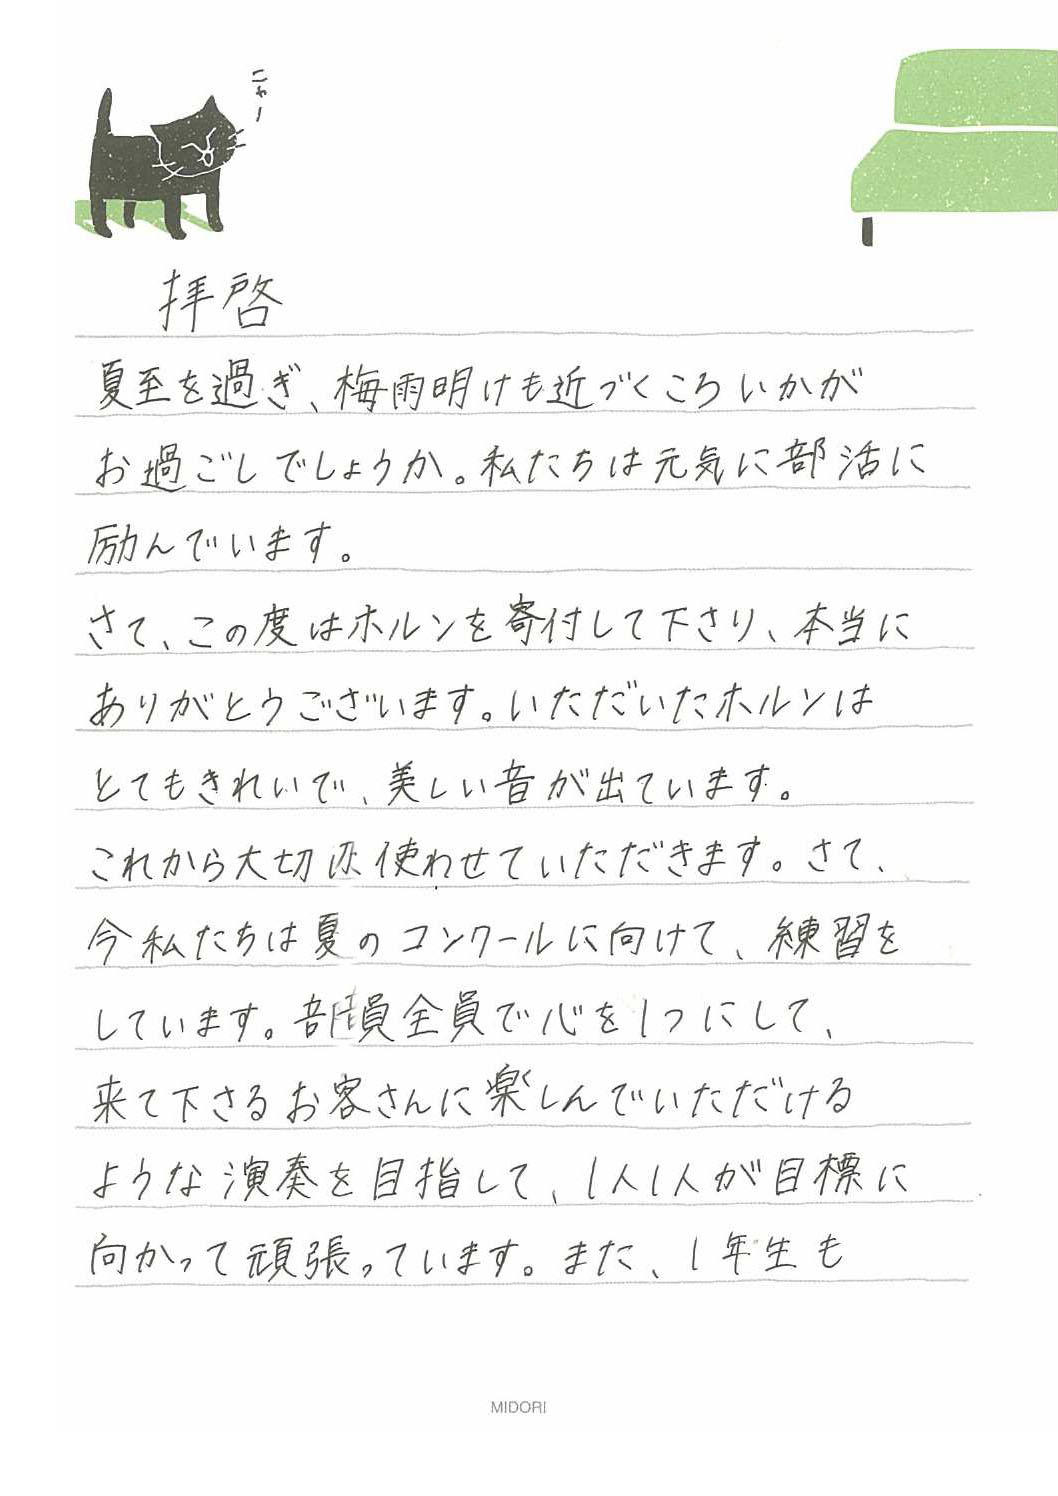 ニャー
拝啓
夏至を過ぎ、梅雨明けも近づくころいかが
お過ごしでしょうか。私たちは元気に部活に
励んでいます。
さて、この度はホルンを寄付して下さり、本当に
ありがとうございます。いただいたホルンは
とてもきれいで、美しい音が出ています。
これから大切に使わせていただきます。さて、
今私たちは夏のコンクールに向けて、練習を
しています。部員全員で心を1つにして、
来て下さるお客さんに楽しんでいただける
ような演奏を目指して、1人1人が目標に
向かって頑張っています。また、1年生も
MIDORI